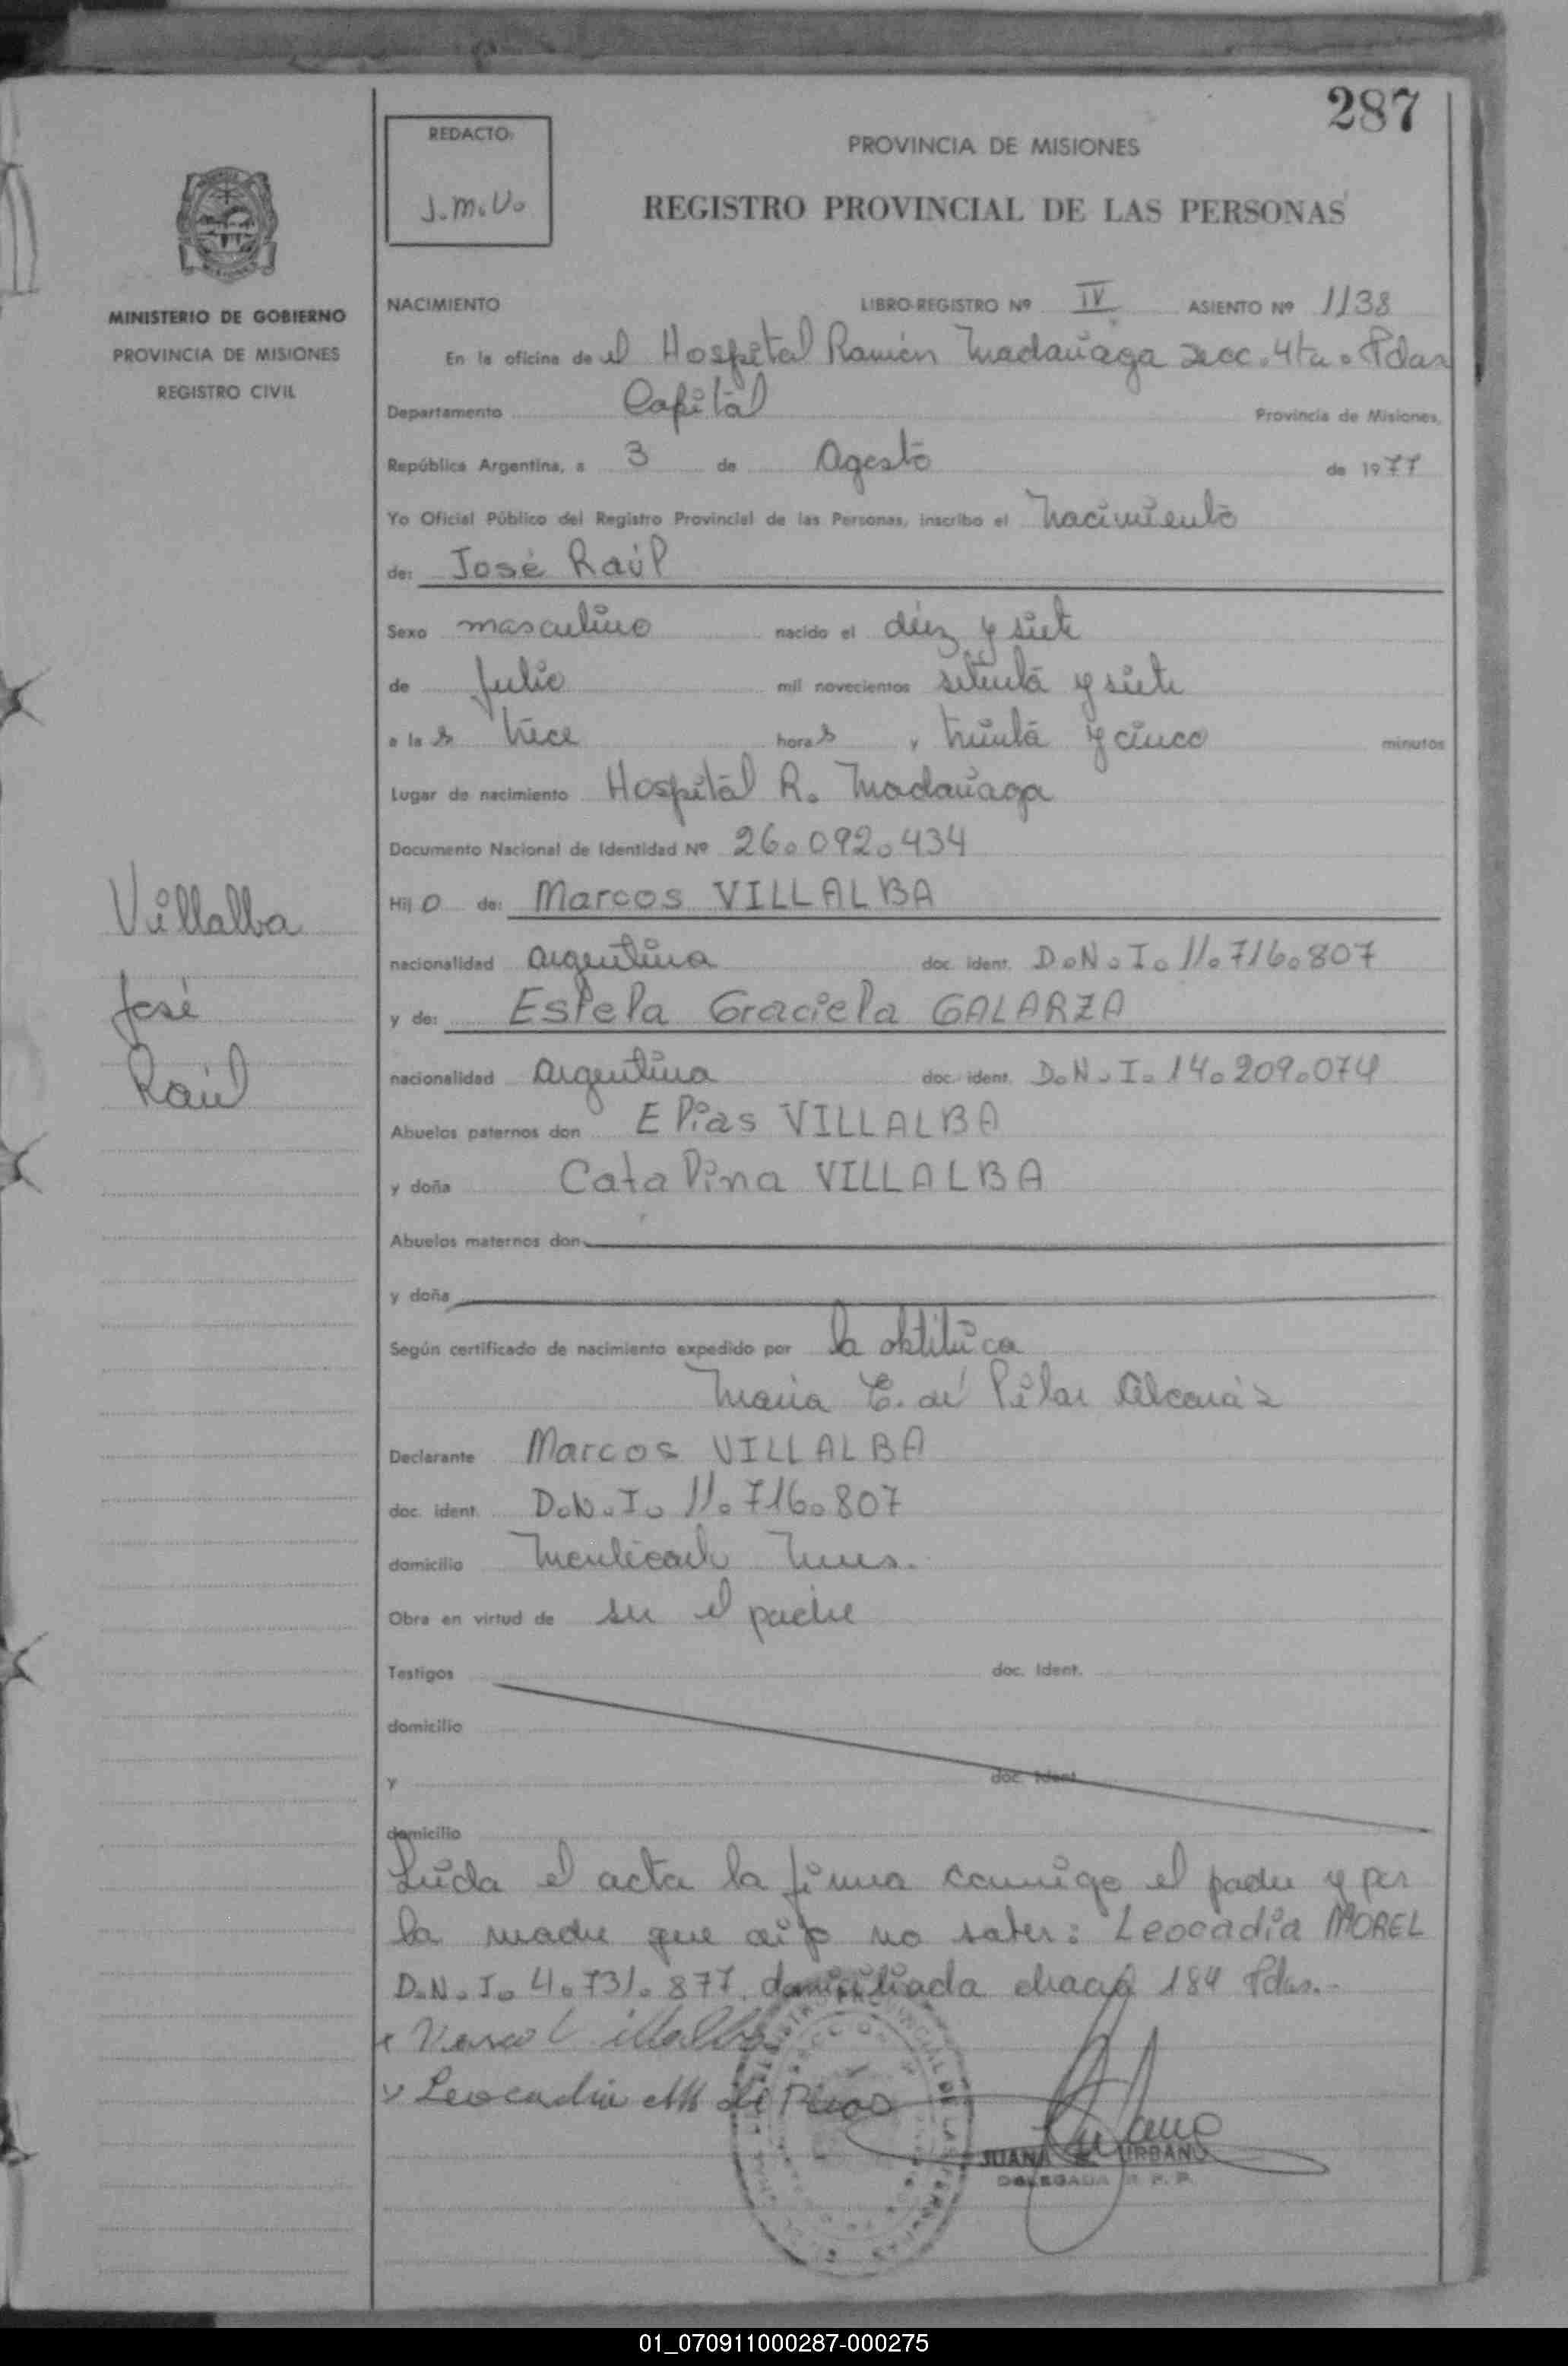 287
REDACTO:
J.M.V.
PROVINCIA DE MISIONES
REGISTRO PROVINCIAL DE LAS PERSONAS
MINISTERIO DE GOBIERNO
PROVINCIA DE MISIONES
REGISTRO CIVIL
NACIMIENTO LIBRO-REGISTRO Nº IV ASIENTO Nº 1138
En la oficina de el Hospital Ramón Madariaga secc. 4ta. Pdas
Departamento Capital Provincia de Misiones,
República Argentina, a 3 de Agosto de 1977
Yo Oficial Público del Registro Provincial de las Personas, inscribo el Nacimiento
de: José Raúl
Sexo masculino nacido el diez y siete
de Julio mil novecientos setenta y siete
a las trece horas y treinta y cinco minutos
Lugar de nacimiento Hospital R. Madariaga
Documento Nacional de Identidad Nº 26.092.434
Hijo de: Marcos VILLALBA
nacionalidad argentina doc. ident. D.N.I. 11.716.807
y de: Estela Graciela GALARZA
nacionalidad argentina doc. ident. D.N.I. 14.209.074
Abuelos paternos don Elias VILLALBA
y doña Catalina VILLALBA
Abuelos maternos don
y doña
Según certificado de nacimiento expedido por la obtétrica
María E. del Pilar Alcaráz
Declarante Marcos VILLALBA
doc. ident. D.N.I. 11.716.807
domicilio Montecarlo Mnes.
Obra en virtud de ser el padre
Testigos doc. Ident.
domicilio
y doc. Ident.
domicilio
Leída el acta la firma conmigo el padre y por
la madre que dijo no saber: Leocadia MOREL
D.N.I. 4.731.877, domiciliada chacra 184 Pdas.-
Villalba
Leocadia M de
JUANA URBANO
DELEGADA R. P. P.
Villalba
José
Raúl
01_070911000287-000275